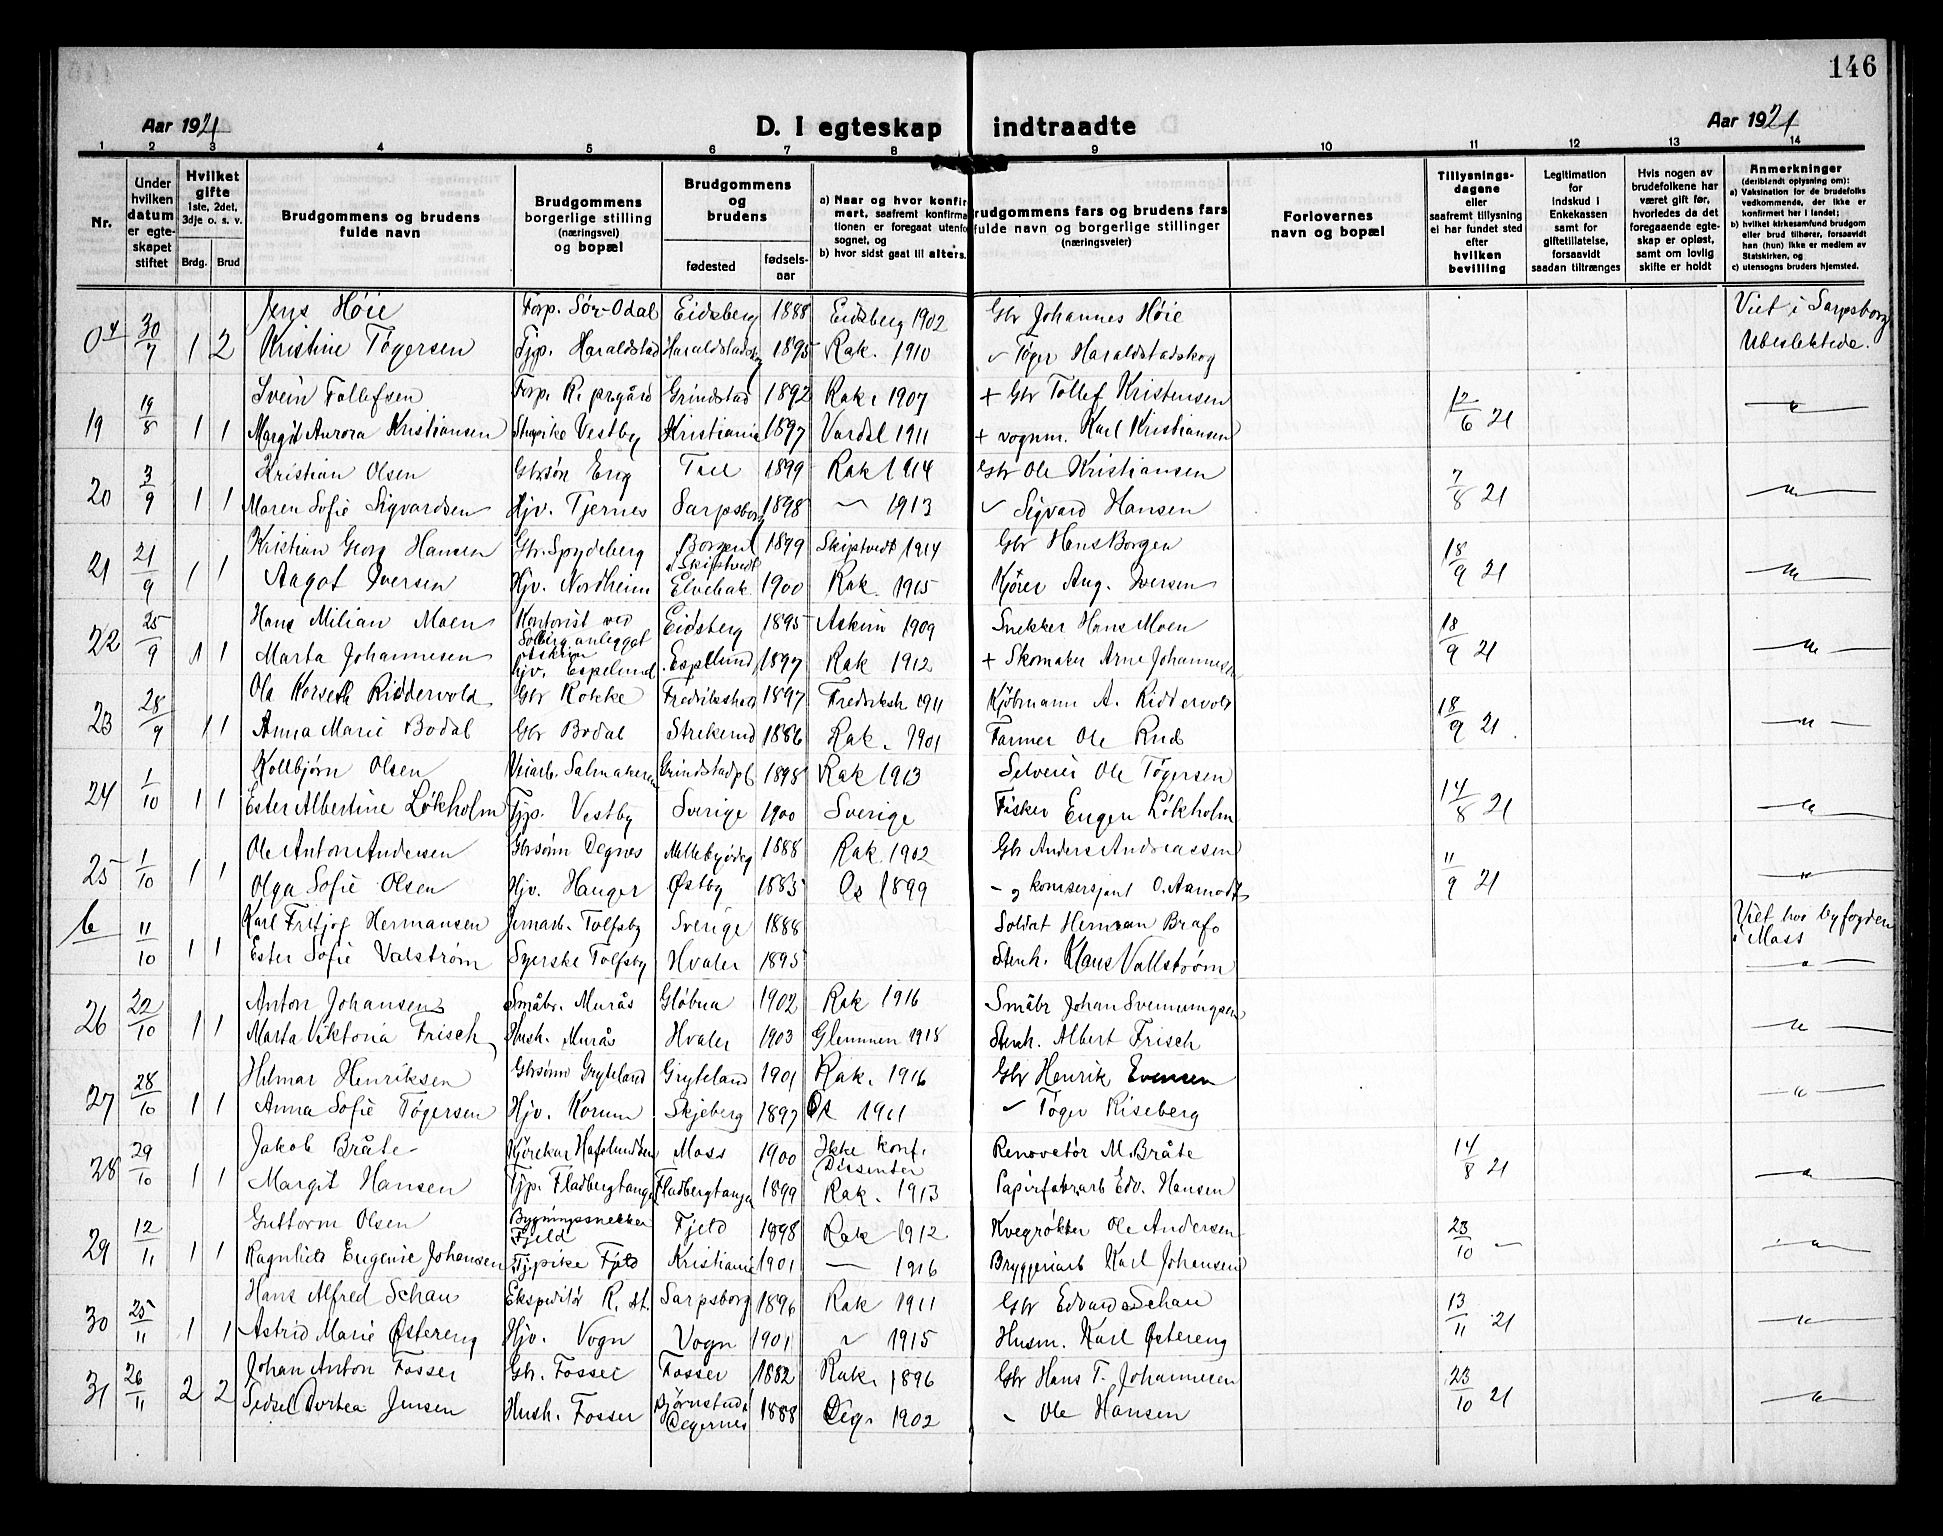 146
Aar 1921 D. I egteskap indtraadte Aar 1921
1 2 3 4 5 6 7 8 9 10 11 12 13 14
Nr.
Under hvilken datum er egteskapet stiftet
Hvilket gifte 1ste, 2det, 3dje o. s. v. Brdg. Brud
Brudgommens og brudens fulde navn
Brudgommens borgerlige stilling (næringsvei) og bopæl
Brudgommens og brudens fødested fødselsaar
a) Naar og hvor konfirmert, saafremt konfirmationen er foregaat utenfor sognet, og
b) hvor sidst gaat til alters.
Brudgommens fars og brudens fars fulde navn og borgerlige stillinger (næringsveier)
Forlovernes navn og bopæl
Tillysningsdagene eller saafremt tillysning ei har fundet sted efter hvilken bevilling
Legitimation for indskud i Enkekassen samt for giftetillatelse, forsaavidt saadan tiltrænges
Hvis nogen av brudefolkene har været gift før, hvorledes da det foregaaende egteskap er opløst, samt om lovlig skifte er holdt
Anmerkninger (deriblandt oplysning om): a) Vaksination for de brudefolks vedkommende, der ikke er konfirmert her i landet; b) hvilket kirkesamfund brudgom eller brud tilhører, forsaavidt han (hun) ikke er medlem av Statskirken, og c) utensogns bruders hjemsted.
30/7 1 2 Jens Høie Forp. Sør-Odal Eidsberg 1888 Eidsberg 1902 Gbr Johannes Høie Viet i Sarpsborg
Kristine Tøgersen Fjp. Haraldstad Haraldstadskog 1895 Rak. 1910 〃 Tøger Haraldstadskog Ubeslektede.
19 19/8 1 1 Svein Tollefsen Forp. R. prgård Grindstad 1892 Rak. 1907 + Gbr Tollef Kristensen 12/6 21 〃
Margit Aurora Kristiansen Vestby Kristiania 1897 Vardal 1911 + vognm. Karl Kristiansen
20 3/9 1 1 Kristian Olsen Gbrsøn Eng 1899 Rak 1914 Gbr Ole Kristiansen 7/8 21 〃
Maren Sofie Sigvardsen Hjv. Tjernes Sarpsborg 1898 〃 1913 〃 Sigvard Hansen
21 21/9 1 1 Kristian Georg Hansen Gbr. Spydeberg Borgen i Skiptvedt 1899 Skiptvedt 1914 Gbr Hans Borgen 18/9 21 〃
Aagot Iversen Hjv. Nordheim Elvebak 1900 Rak. 1915 Kjører Aug. Iversen
22 25/9 1 1 Hans Milian Moen Kontorist ved Solberganlegget Askim Eidsberg 1895 Askim 1909 Snekker Hans Moen 18/9 21 〃
Marta Johannesen Hjv. Espelund Espelund 1897 Rak 1912 + Skomaker Arne Johannesen
23 28/9 1 1 Ola Korseth Riddervold Gbr Kokke Fredrikshald 1897 Fredriksh 1911 Kjøbmann A. Riddervold 18/9 21 〃
Anna Marie Bodal Gbr Bodal Strekerud 1886 Rak. 1901 Farmer Ole Rud
24 1/10 1 1 Kollbjørn Olsen Veiarb. Salmakeren Grindstadpl 1898 Rak 1913 Selveier Ole Tøgersen 14/8 21 〃
Ester Albertine Løkholm Fjp. Vestby Sverige 1900 Sverige Fisker Eugen Løkholm
25 1/10 1 1 Ole Anton Andersen Gbrsønn Degnes 1888 Rak 1902 Gbr Anders Andreassen 11/9 21 〃
Olga Sofie Olsen Hjv. Hauger Østby 1883 Os 1899 〃 og komsersjant O. Aamodt
b 11/10 1 1 Karl Fritjof Hermansen Jernarb. Tolfsby Sverige 1888 Soldat Herman Brafo Viet hos byfogden i Moss
Ester Sofie Valstrøm Syerske Tolfsby Hvaler 1895 Stenh. Klaus Vallstrøm 〃
26 22/10 1 1 Anton Johansen Småbr. Murås Gløbua 1902 Rak 1916 Småbr Johan Svennungsen 〃
Marta Viktoria Frisch Hush. Murås Hvaler 1903 Glemmen 1918 Stenh. Albert Frisch
27 28/10 1 1 Hilmar Henriksen Gbrsønn Gryteland Gryteland 1901 Rak. 1916 Gbr Henrik Evensen 〃
Anna Sofie Tøgersen Hjv. Korum Skjeberg 1897 Os 1911 〃 Tøger Riseberg
28 29/10 1 1 Jakob Bråte Kjørekar Hafslundsøen Moss 1900 Ikke konf. Dissenter Renovetør M. Bråte 14/8 21 〃
Margit Hansen Fjp. Fladbergtangen Fladbergtangen 1899 Rak. 1913 Papirfabr.arb Edv. Hansen
29 12/11 1 1 Guttorm Olsen Bygningssnekker Fjeld Fjeld 1898 Rak 1912 Kvegrøkter Ole Andersen 23/10 〃
Ragnhild Eugenie Johansen Fjpike Fjeld Kristiania 1901 〃 1916 Bryggeriarb Karl Johansen
30 25/11 1 1 Hans Alfred Schau Ekspeditør R. st. Sarpsborg 1896 Rak 1911 Gbr Edvard Schau 13/11 21 〃
Astrid Marie Østereng Hjv. Vogn Vogn 1901 〃 1915 Husm. Karl Østereng
31 26/11 2 2 Johan Anton Fosser Gbr. Fosser Fosser 1882 Rak. 1896 Gbr Hans T. Johannesen 23/10 21 〃
Sidsel Dortea Jensen Hush. Fosser Bjørnstad i Degernes 1888 Deg. 1902 〃 Ole Hansen